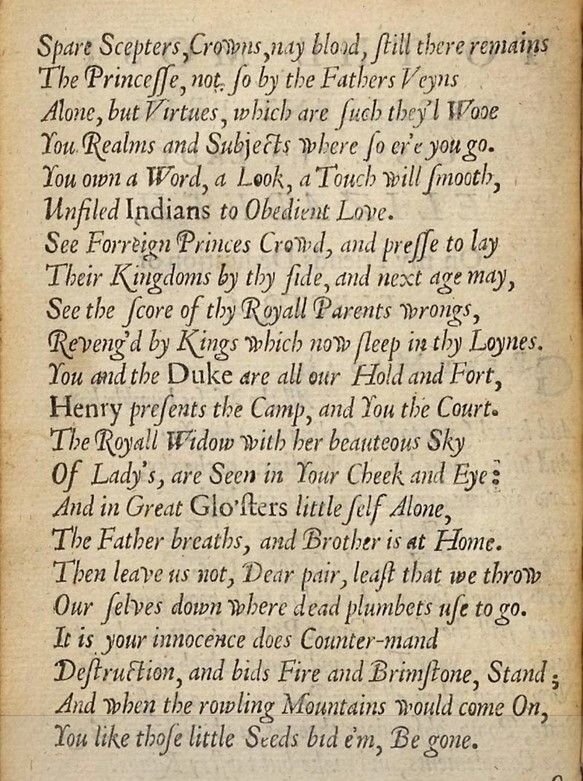 Spare Scepters,Crowns,nay blood, ſtill there remains
The Princeſſe, not, ſo by the Fathers Veyns
Alone, but Virtues, which are ſuch they'l Wooe
You Realms and Subjects where ſo er'e you go.
You own a Word, a Look, a Touch will ſmooth,
Unfiled Indians to Obedient Love.
See Forreign Princes Crowd, and preſſe to lay
Their Kingdoms by thy ſide, and next age may,
See the ſcore of thy Royall Parents wrongs,
Reveng'd by Kings which now ſleep in thy Loynes.
You and the Duke are all our Hold and Fort,
Henry preſents the Camp, and You the Court.
The Royall Widow with her beauteous Sky
Of Lady's, are Seen in Your Cheek and Eye:
And in Great Glo'ſters little ſelf Alone,
The Father breaths, and Brother is at Home.
Then leave us not, Dear pair, leaſt that we throw
Our ſelves down where dead plumbets uſe to go.
It is your innocence does Counter-mand
Deſtruction, and bids Fire and Brimſtone, Stand;
And when the rowling Mountains would come On,
You like thoſe little Seeds bid e'm, Be gone.